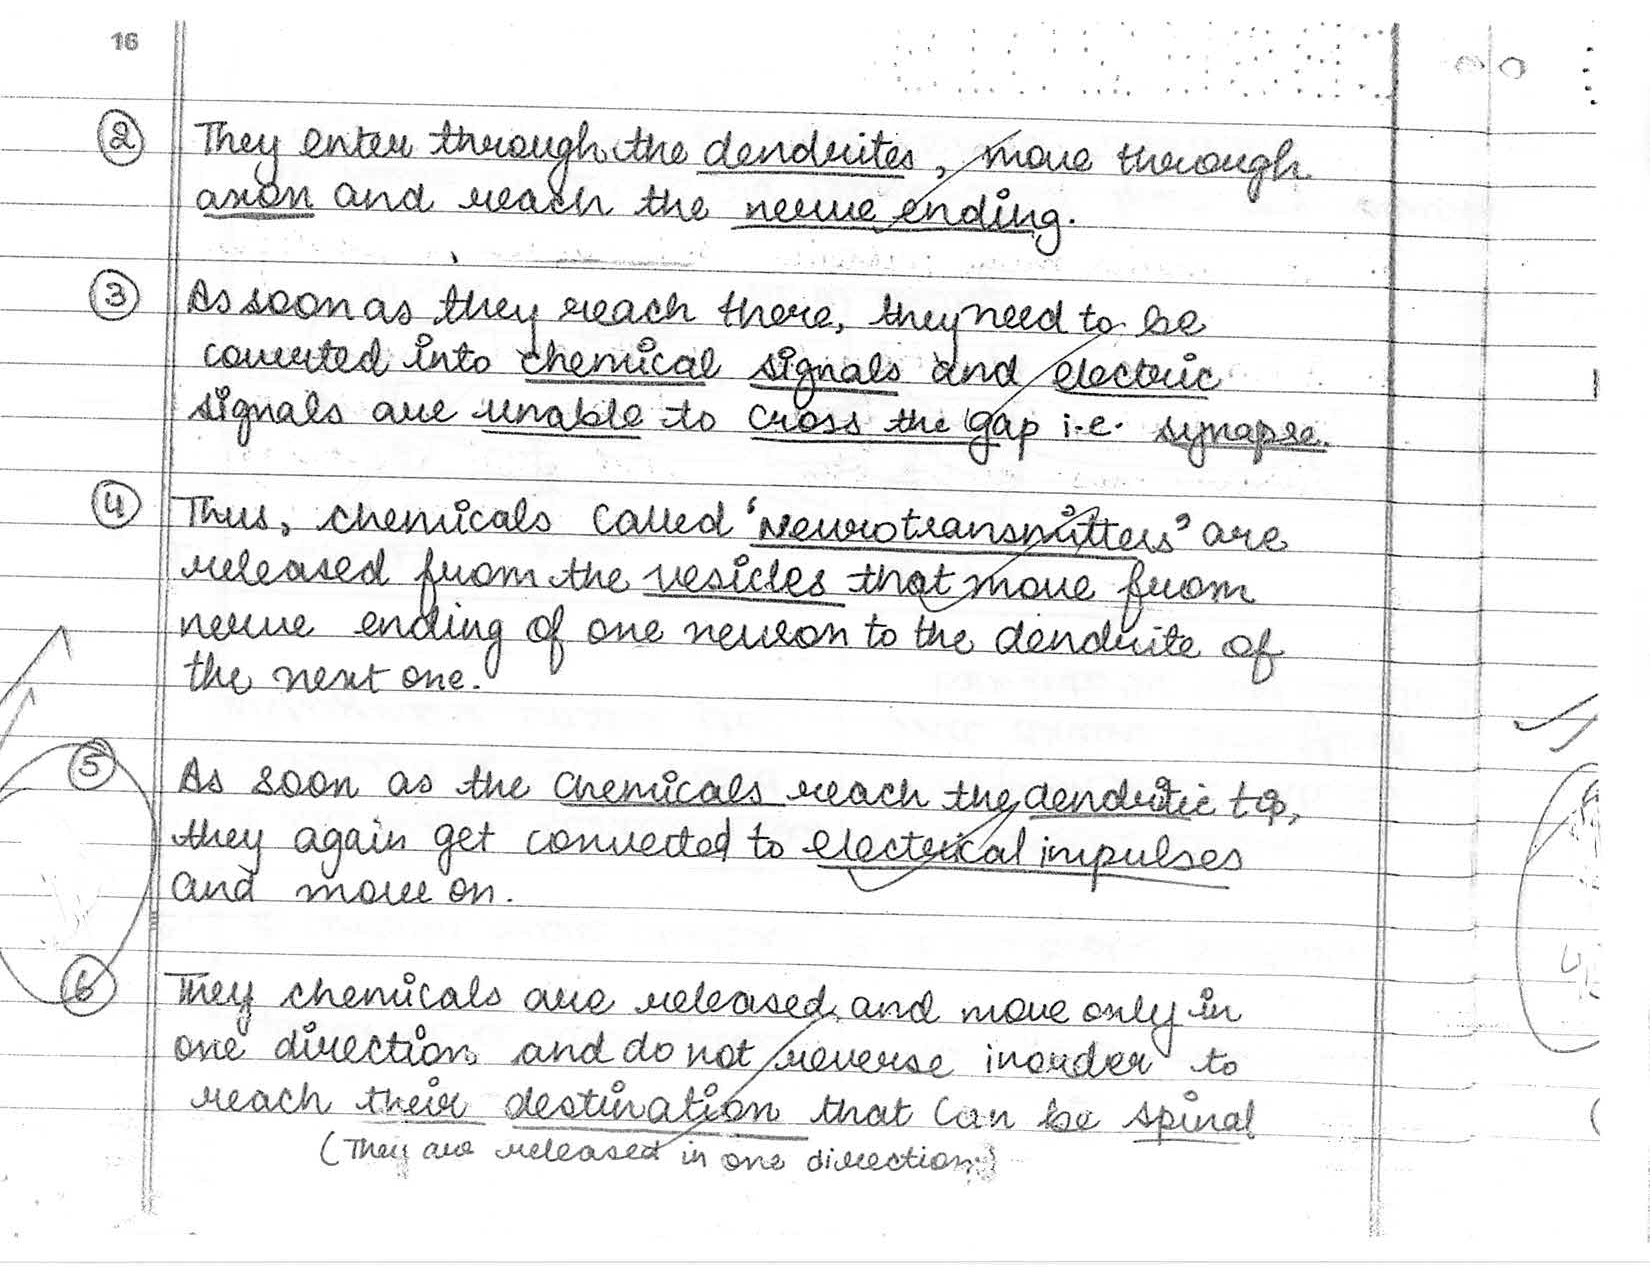 16
② They enter through the dendrites, move through
axon and reach the nerve ending.
③ As soon as they reach there, they need to be
coverted into chemical signals and electric
signals are unable to cross the gap i.e. synapse.
④ Thus, chemicals called 'Neurotransmitters' are
released from the vesicles that move from
nerve ending of one neuron to the dendrite of
the next one.
⑤ As soon as the chemicals reach the dendritic tip,
they again get converted to electrical impulses
and move on.
⑥ They chemicals are released and move only in
one direction and do not reverse inorder to
reach their destination that can be spinal
(They are released in one direction)